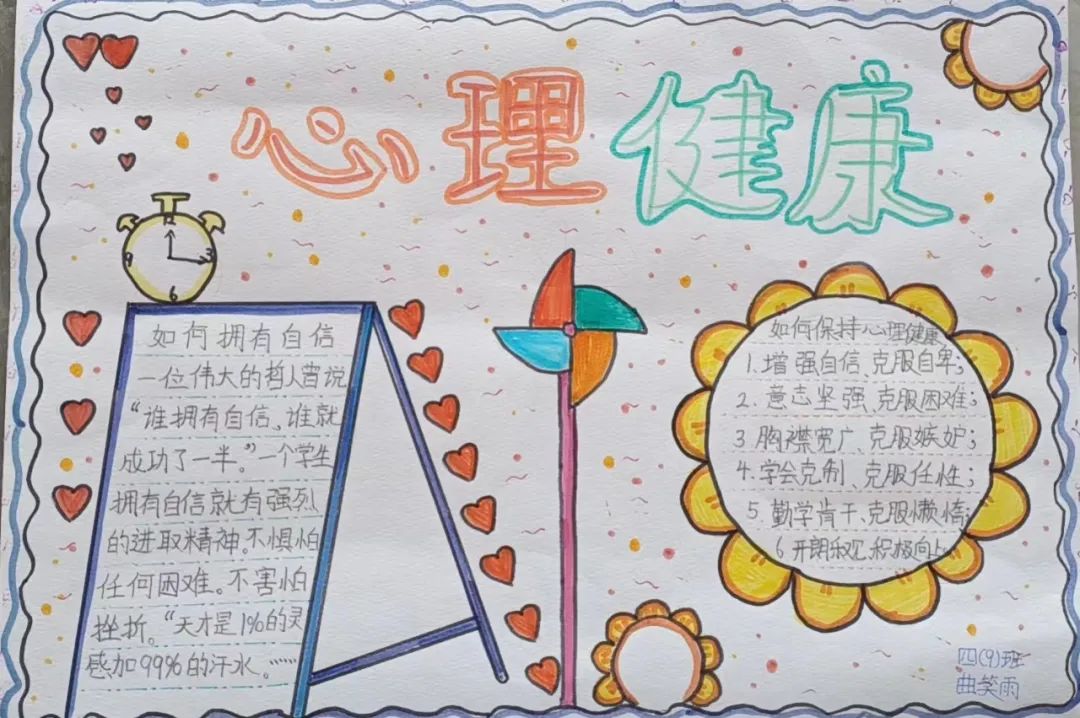 心理健康
12
3
6
如何拥有自信
一位伟大的哲人曾说
“谁拥有自信、谁就
成功了一半。”一个学生
拥有自信就有强烈
的进取精神。不惧怕
任何困难。不害怕
挫折。“天才是1%的灵
感加99%的汗水。……
如何保持心理健康
1.增强自信、克服自卑；
2.意志坚强、克服困难；
3.胸襟宽广、克服嫉妒；
4.学会克制、克服任性；
5.勤学肯干、克服懒惰；
6.开朗乐观、积极向上
四(9)班
曲笑雨